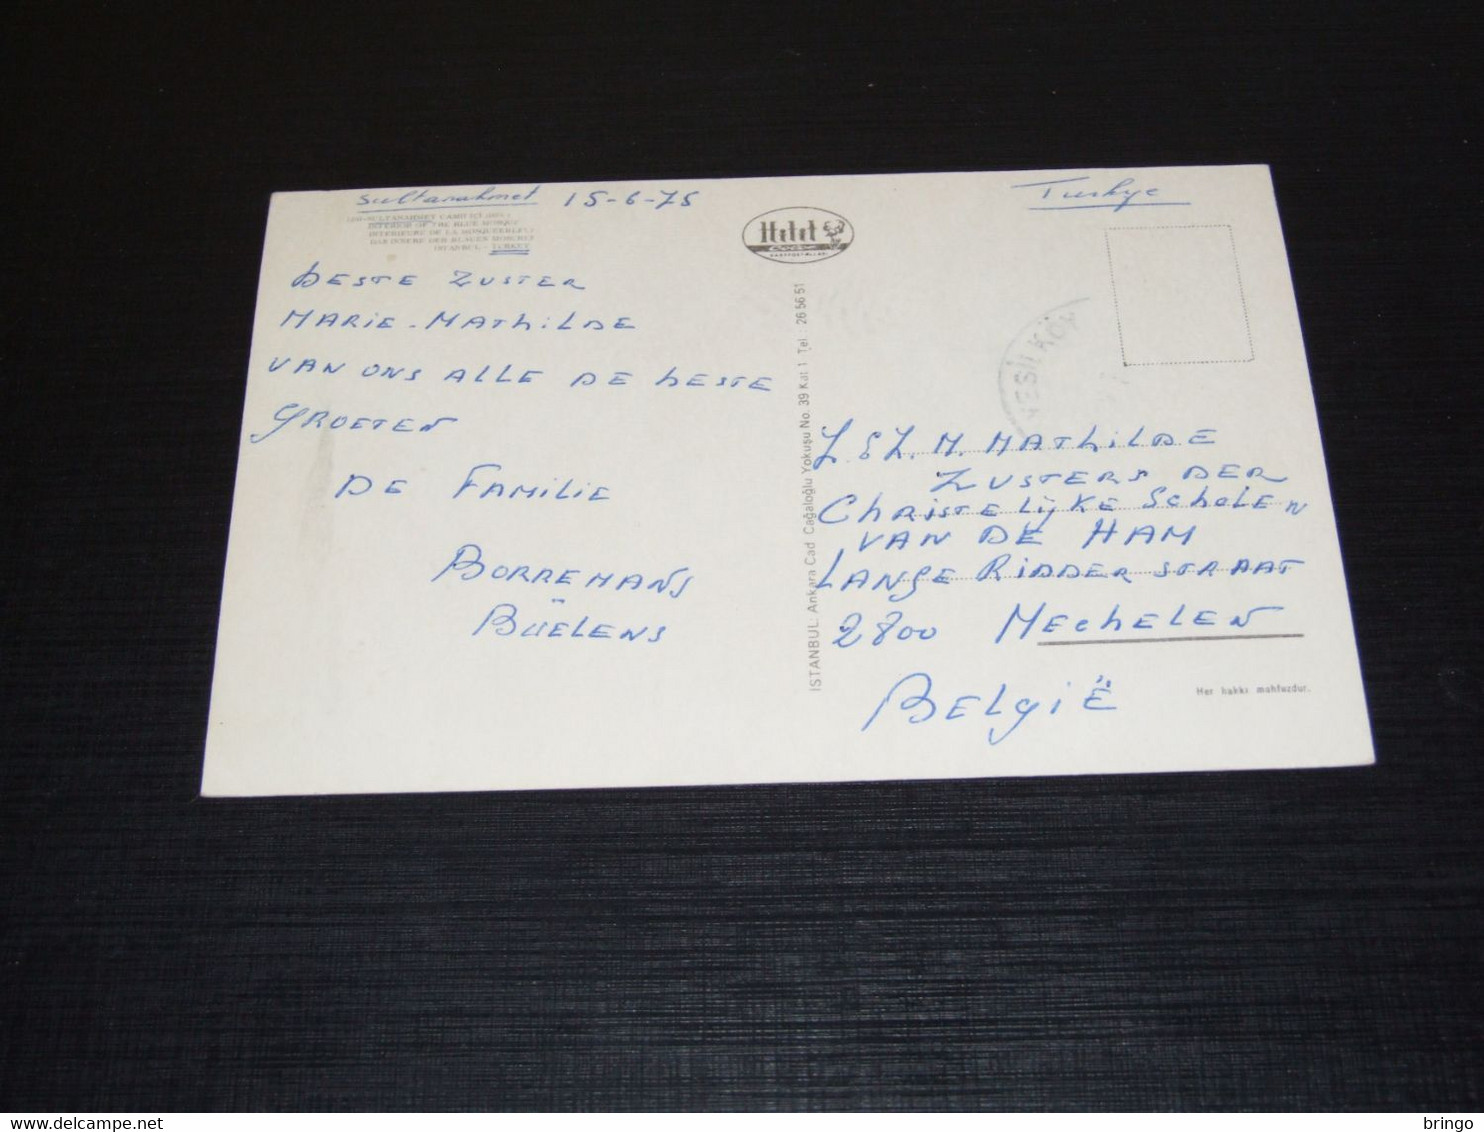 Sultanahmet 15-6-75
SULTANAHMET CAMİİ İÇİ
INTERIOR OF THE BLUE MOSQUE
INTERIEURE DE LA MOSQUEE BLEUE
DAS INNERE DER BLAUEN MOSCHEE
ISTANBUL - TURKEY
BESTE ZUSTER
MARIE-MATHILDE
VAN ONS ALLE DE BESTE
GROETEN
DE FAMILIE
BORREMANS
BÜELENS
KARTPOSTALLARI
ISTANBUL: Ankara Cad Cağaloğlu Yokuşu No. 39 Kat 1 Tel : 26 56 51
Turkye
YEŞİLKÖY
Z E Z. M. MATHILDE
ZUSTERS DER
CHRISTELIJKE SCHOLEN
VAN DE HAM
LANGE RIDDER STRAAT
2800 MECHELEN
BELGIË
Her hakkı mahfuzdur.
delcampe.net
bringo